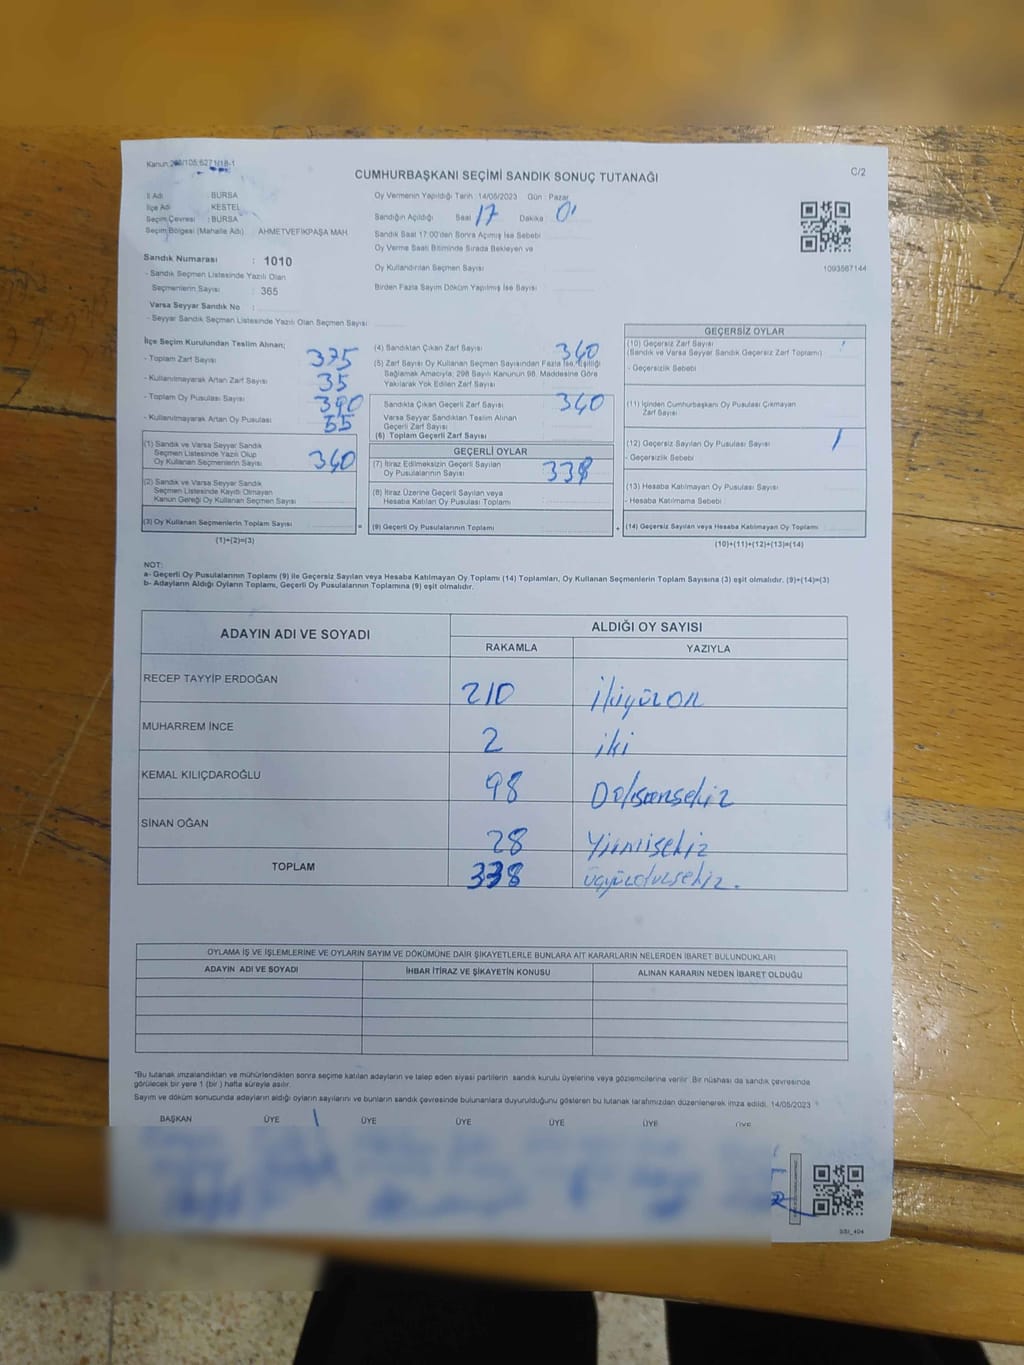 Kanun:298/105;6271/18-1
C/2
CUMHURBAŞKANI SEÇİMİ SANDIK SONUÇ TUTANAĞI
İl Adı : BURSA
İlçe Adı : KESTEL
Seçim Çevresi : BURSA
Seçim Bölgesi (Mahalle Adı) : AHMETVEFİKPAŞA MAH.
Sandık Numarası : 1010
- Sandık Seçmen Listesinde Yazılı Olan
Seçmenlerin Sayısı : 365
Varsa Seyyar Sandık No :
- Seyyar Sandık Seçmen Listesinde Yazılı Olan Seçmen Sayısı
Oy Vermenin Yapıldığı Tarih :14/05/2023 Gün : Pazar
Sandığın Açıldığı Saat 17 Dakika 01
Sandık Saat 17:00'den Sonra Açılmış İse Sebebi
Oy Verme Saati Bitiminde Sırada Bekleyen ve
Oy Kullandırılan Seçmen Sayısı
Birden Fazla Sayım Döküm Yapılmış İse Sayısı
1093587144
İlçe Seçim Kurulundan Teslim Alınan;
- Toplam Zarf Sayısı 375
- Kullanılmayarak Artan Zarf Sayısı 35
- Toplam Oy Pusulası Sayısı 390
- Kullanılmayarak Artan Oy Pusulası 55
(1) Sandık ve Varsa Seyyar Sandık
Seçmen Listesinde Yazılı Olup
Oy Kullanan Seçmenlerin Sayısı 340
(2) Sandık ve Varsa Seyyar Sandık
Seçmen Listesinde Kaydı Olmayan
Kanun Gereği Oy Kullanan Seçmen Sayısı
(3) Oy Kullanan Seçmenlerin Toplam Sayısı =
(1)+(2)=(3)
(4) Sandıktan Çıkan Zarf Sayısı 340
(5) Zarf Sayısı Oy Kullanan Seçmen Sayısından Fazla İse, Eşitliği
Sağlamak Amacıyla, 298 Sayılı Kanunun 98. Maddesine Göre
Yakılarak Yok Edilen Zarf Sayısı
Sandıkta Çıkan Geçerli Zarf Sayısı 340
Varsa Seyyar Sandıktan Teslim Alınan
Geçerli Zarf Sayısı
(6) Toplam Geçerli Zarf Sayısı
GEÇERLİ OYLAR
(7) İtiraz Edilmeksizin Geçerli Sayılan
Oy Pusulalarının Sayısı 338
(8) İtiraz Üzerine Geçerli Sayılan veya
Hesaba Katılan Oy Pusulası Toplamı
(9) Geçerli Oy Pusulalarının Toplamı +
GEÇERSİZ OYLAR
(10) Geçersiz Zarf Sayısı
(Sandık ve Varsa Seyyar Sandık Geçersiz Zarf Toplamı)
- Geçersizlik Sebebi
(11) İçinden Cumhurbaşkanı Oy Pusulası Çıkmayan
Zarf Sayısı
(12) Geçersiz Sayılan Oy Pusulası Sayısı 1
- Geçersizlik Sebebi
(13) Hesaba Katılmayan Oy Pusulası Sayısı
- Hesaba Katılmama Sebebi
(14) Geçersiz Sayılan veya Hesaba Katılmayan Oy Toplamı
(10)+(11)+(12)+(13)=(14)
NOT:
a- Geçerli Oy Pusulalarının Toplamı (9) ile Geçersiz Sayılan veya Hesaba Katılmayan Oy Toplamı (14) Toplamları, Oy Kullanan Seçmenlerin Toplam Sayısına (3) eşit olmalıdır. (9)+(14)=(3)
b- Adayların Aldığı Oyların Toplamı, Geçerli Oy Pusulalarının Toplamına (9) eşit olmalıdır.
ADAYIN ADI VE SOYADI
ALDIĞI OY SAYISI
RAKAMLA YAZIYLA
RECEP TAYYİP ERDOĞAN 210 İkiyüzon
MUHARREM İNCE 2 iki
KEMAL KILIÇDAROĞLU 98 Doksansekiz
SİNAN OĞAN 28 Yirmisekiz
TOPLAM 338 üçyüzotuzsekiz.
OYLAMA İŞ VE İŞLEMLERİNE VE OYLARIN SAYIM VE DÖKÜMÜNE DAİR ŞİKAYETLERLE BUNLARA AİT KARARLARIN NELERDEN İBARET BULUNDUKLARI
ADAYIN ADI VE SOYADI İHBAR İTİRAZ VE ŞİKAYETİN KONUSU ALINAN KARARIN NEDEN İBARET OLDUĞU
*Bu tutanak imzalandıktan ve mühürlendikten sonra seçime katılan adayların ve talep eden siyasi partilerin sandık kurulu üyelerine veya gözlemcilerine verilir. Bir nüshası da sandık çevresinde
görülecek bir yere 1 (bir ) hafta süreyle asılır.
Sayım ve döküm sonucunda adayların aldığı oyların sayılarını ve bunların sandık çevresinde bulunanlara duyurulduğunu gösteren bu tutanak tarafımızdan düzenlenerek imza edildi. 14/05/2023
BAŞKAN ÜYE ÜYE ÜYE ÜYE ÜYE ÜYE
SSI_404